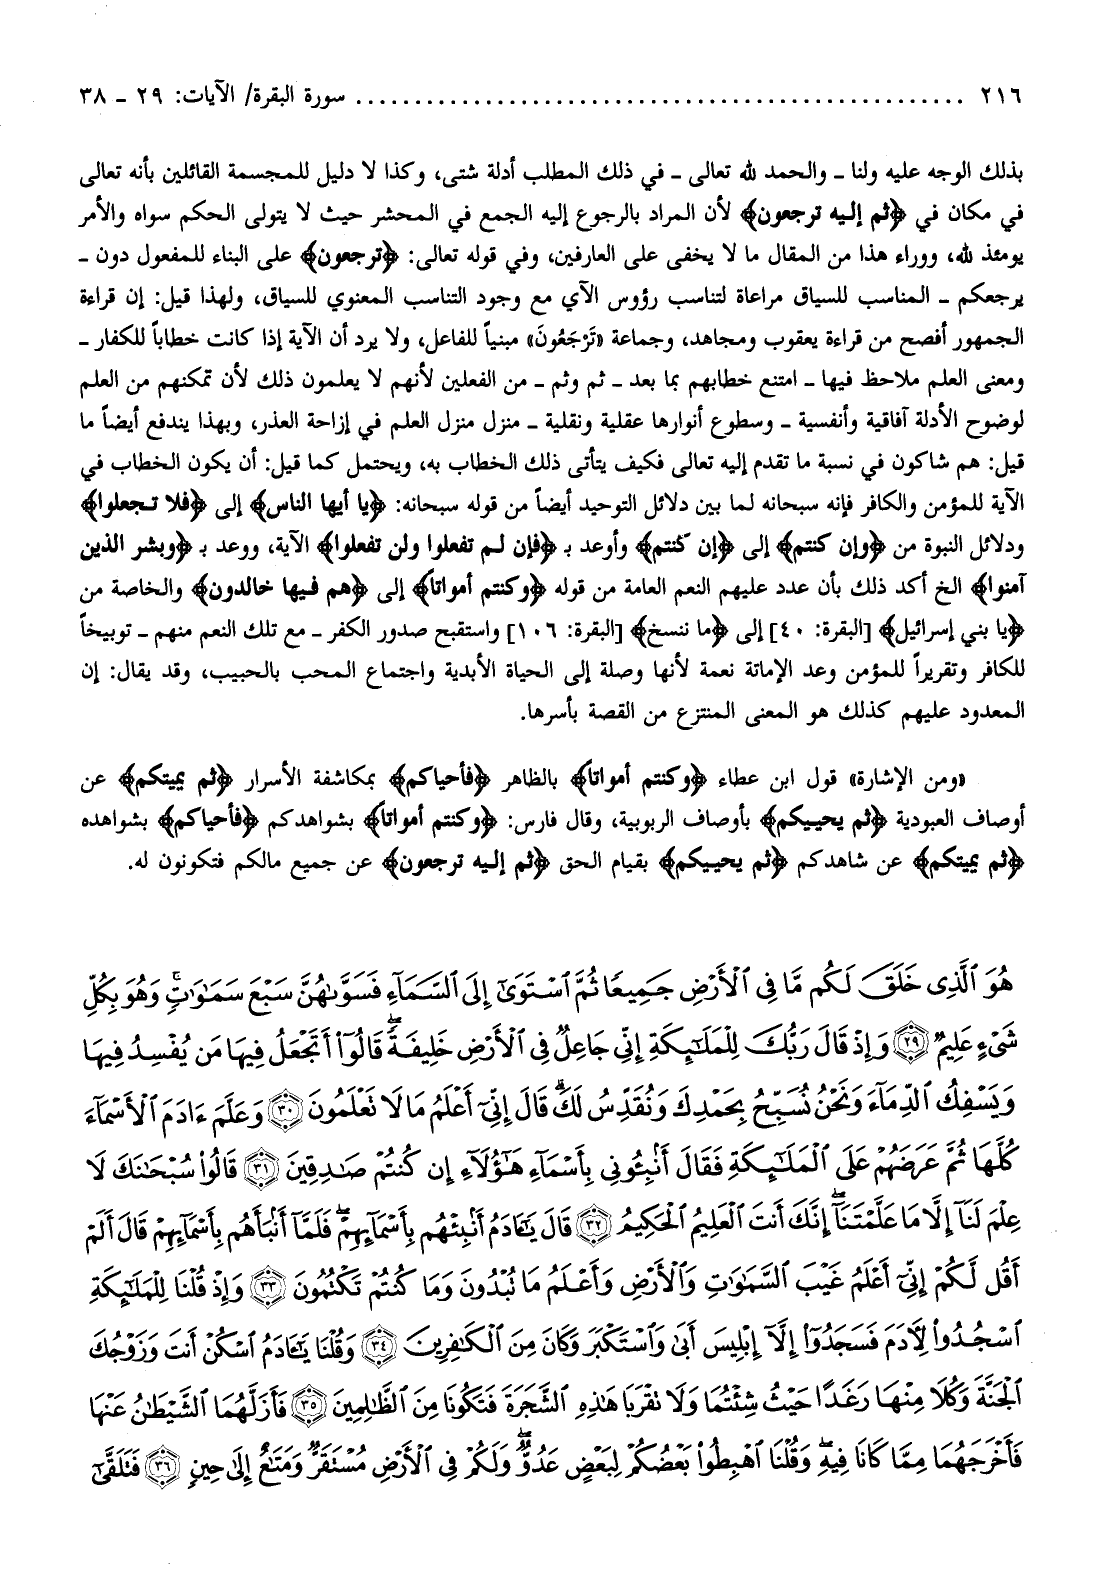 ٢١٦ ........................................................ سورة البقرة/ الآيات: ٢٩ - ٣٨
بذلك الوجه عليه ولنا - والحمد لله تعالى - في ذلك المطلب أدلة شتى، وكذا لا دليل للمجسمة القائلين بأنه تعالى
في مكان في ﴿ثم إليه ترجعون﴾ لأن المراد بالرجوع إليه الجمع في المحشر حيث لا يتولى الحكم سواه والأمر
يومئذ لله، ووراء هذا من المقال ما لا يخفى على العارفين، وفي قوله تعالى: ﴿ترجعون﴾ على البناء للمفعول دون -
يرجعكم - المناسب للسياق مراعاة لتناسب رؤوس الآي مع وجود التناسب المعنوي للسياق، ولهذا قيل: إن قراءة
الجمهور أفصح من قراءة يعقوب ومجاهد، وجماعة «تَرْجَعُونَ» مبنياً للفاعل، ولا يرد أن الآية إذا كانت خطاباً للكفار -
ومعنى العلم ملاحظ فيها - امتنع خطابهم بما بعد - ثم وثم - من الفعلين لأنهم لا يعلمون ذلك لأن تمكنهم من العلم
لوضوح الأدلة آفاقية وأنفسية - وسطوع أنوارها عقلية ونقلية - منزل منزل العلم في إزاحة العذر، وبهذا يندفع أيضاً ما
قيل: هم شاكون في نسبة ما تقدم إليه تعالى فكيف يتأتى ذلك الخطاب به، ويحتمل كما قيل: أن يكون الخطاب في
الآية للمؤمن والكافر فإنه سبحانه لما بين دلائل التوحيد أيضاً من قوله سبحانه: ﴿يا أيها الناس﴾ إلى ﴿فلا تجعلوا﴾
ودلائل النبوة من ﴿وإن كنتم﴾ إلى ﴿إن كنتم﴾ وأوعد بـ ﴿فإن لم تفعلوا ولن تفعلوا﴾ الآية، ووعد بـ ﴿وبشر الذين
آمنوا﴾ الخ أكد ذلك بأن عدد عليهم النعم العامة من قوله ﴿وكنتم أمواتاً﴾ إلى ﴿هم فيها خالدون﴾ والخاصة من
﴿يا بني إسرائيل﴾ [البقرة: ٤٠] إلى ﴿ما ننسخ﴾ [البقرة: ١٠٦] واستقبح صدور الكفر - مع تلك النعم منهم - توبيخاً
للكافر وتقريراً للمؤمن وعد الإماتة نعمة لأنها وصلة إلى الحياة الأبدية واجتماع المحب بالحبيب، وقد يقال: إن
المعدود عليهم كذلك هو المعنى المنتزع من القصة بأسرها.
«ومن الإشارة» قول ابن عطاء ﴿وكنتم أمواتاً﴾ بالظاهر ﴿فأحياكم﴾ بمكاشفة الأسرار ﴿ثم يميتكم﴾ عن
أوصاف العبودية ﴿ثم يحييكم﴾ بأوصاف الربوبية، وقال فارس: ﴿وكنتم أمواتاً﴾ بشواهدكم ﴿فأحياكم﴾ بشواهده
﴿ثم يميتكم﴾ عن شاهدكم ﴿ثم يحييكم﴾ بقيام الحق ﴿ثم إليه ترجعون﴾ عن جميع مالكم فتكونون له.
هُوَ ٱلَّذِى خَلَقَ لَكُم مَّا فِى ٱلْأَرْضِ جَمِيعًا ثُمَّ ٱسْتَوَىٰٓ إِلَى ٱلسَّمَآءِ فَسَوَّىٰهُنَّ سَبْعَ سَمَٰوَٰتٍ ۚ وَهُوَ بِكُلِّ
شَىْءٍ عَلِيمٌ ﴿٢٩﴾ وَإِذْ قَالَ رَبُّكَ لِلْمَلَٰٓئِكَةِ إِنِّى جَاعِلٌ فِى ٱلْأَرْضِ خَلِيفَةً ۖ قَالُوٓا۟ أَتَجْعَلُ فِيهَا مَن يُفْسِدُ فِيهَا
وَيَسْفِكُ ٱلدِّمَآءَ وَنَحْنُ نُسَبِّحُ بِحَمْدِكَ وَنُقَدِّسُ لَكَ ۖ قَالَ إِنِّىٓ أَعْلَمُ مَا لَا تَعْلَمُونَ ﴿٣٠﴾ وَعَلَّمَ ءَادَمَ ٱلْأَسْمَآءَ
كُلَّهَا ثُمَّ عَرَضَهُمْ عَلَى ٱلْمَلَٰٓئِكَةِ فَقَالَ أَنۢبِـُٔونِى بِأَسْمَآءِ هَٰٓؤُلَآءِ إِن كُنتُمْ صَٰدِقِينَ ﴿٣١﴾ قَالُوا۟ سُبْحَٰنَكَ لَا
عِلْمَ لَنَآ إِلَّا مَا عَلَّمْتَنَآ ۖ إِنَّكَ أَنتَ ٱلْعَلِيمُ ٱلْحَكِيمُ ﴿٣٢﴾ قَالَ يَٰٓـَٔادَمُ أَنۢبِئْهُم بِأَسْمَآئِهِمْ ۖ فَلَمَّآ أَنۢبَأَهُم بِأَسْمَآئِهِمْ قَالَ أَلَمْ
أَقُل لَّكُمْ إِنِّىٓ أَعْلَمُ غَيْبَ ٱلسَّمَٰوَٰتِ وَٱلْأَرْضِ وَأَعْلَمُ مَا تُبْدُونَ وَمَا كُنتُمْ تَكْتُمُونَ ﴿٣٣﴾ وَإِذْ قُلْنَا لِلْمَلَٰٓئِكَةِ
ٱسْجُدُوا۟ لِءَادَمَ فَسَجَدُوٓا۟ إِلَّآ إِبْلِيسَ أَبَىٰ وَٱسْتَكْبَرَ وَكَانَ مِنَ ٱلْكَٰفِرِينَ ﴿٣٤﴾ وَقُلْنَا يَٰٓـَٔادَمُ ٱسْكُنْ أَنتَ وَزَوْجُكَ
ٱلْجَنَّةَ وَكُلَا مِنْهَا رَغَدًا حَيْثُ شِئْتُمَا وَلَا تَقْرَبَا هَٰذِهِ ٱلشَّجَرَةَ فَتَكُونَا مِنَ ٱلظَّٰلِمِينَ ﴿٣٥﴾ فَأَزَلَّهُمَا ٱلشَّيْطَٰنُ عَنْهَا
فَأَخْرَجَهُمَا مِمَّا كَانَا فِيهِ ۖ وَقُلْنَا ٱهْبِطُوا۟ بَعْضُكُمْ لِبَعْضٍ عَدُوٌّ ۖ وَلَكُمْ فِى ٱلْأَرْضِ مُسْتَقَرٌّ وَمَتَٰعٌ إِلَىٰ حِينٍ ﴿٣٦﴾ فَتَلَقَّىٰٓ